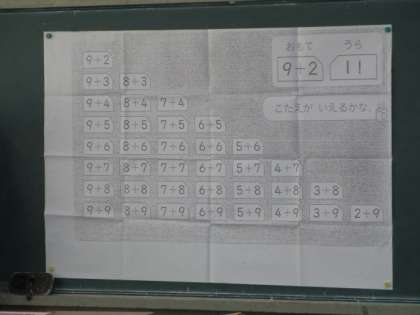 おもて うら
9+2 11
こたえが いえるかな。
9+2
9+3 8+3
9+4 8+4 7+4
9+5 8+5 7+5 6+5
9+6 8+6 7+6 6+6 5+6
9+7 8+7 7+7 6+7 5+7 4+7
9+8 8+8 7+8 6+8 5+8 4+8 3+8
9+9 8+9 7+9 6+9 5+9 4+9 3+9 2+9